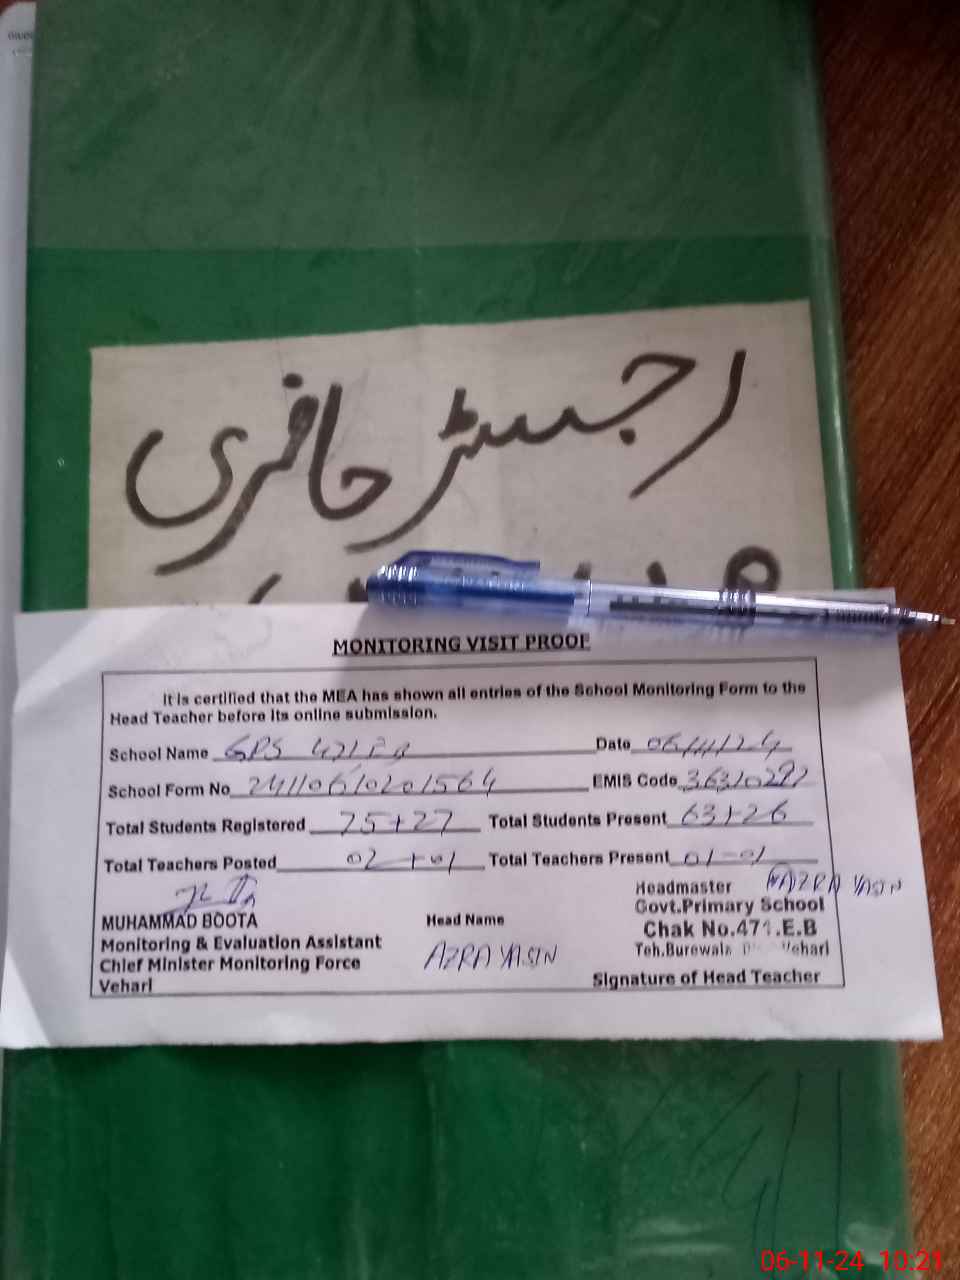 رجسٹر حاضری
MONITORING VISIT PROOF
It is certified that the MEA has shown all entries of the School Monitoring Form to the
Head Teacher before its online submission.
School Name GPS 471 EB Date 06/11/24
School Form No 241106/0201564 EMIS Code 36310292
Total Students Registered 75+27 Total Students Present 63+26
Total Teachers Posted 02+01 Total Teachers Present 01-01
MUHAMMAD BOOTA
Monitoring & Evaluation Assistant
Chief Minister Monitoring Force
Vehari
Head Name
AZRA YASIN
Headmaster AZRA YASIN
Govt.Primary School
Chak No.471.E.B
Teh.Burewala Vehari
Signature of Head Teacher
06-11-24 10:21